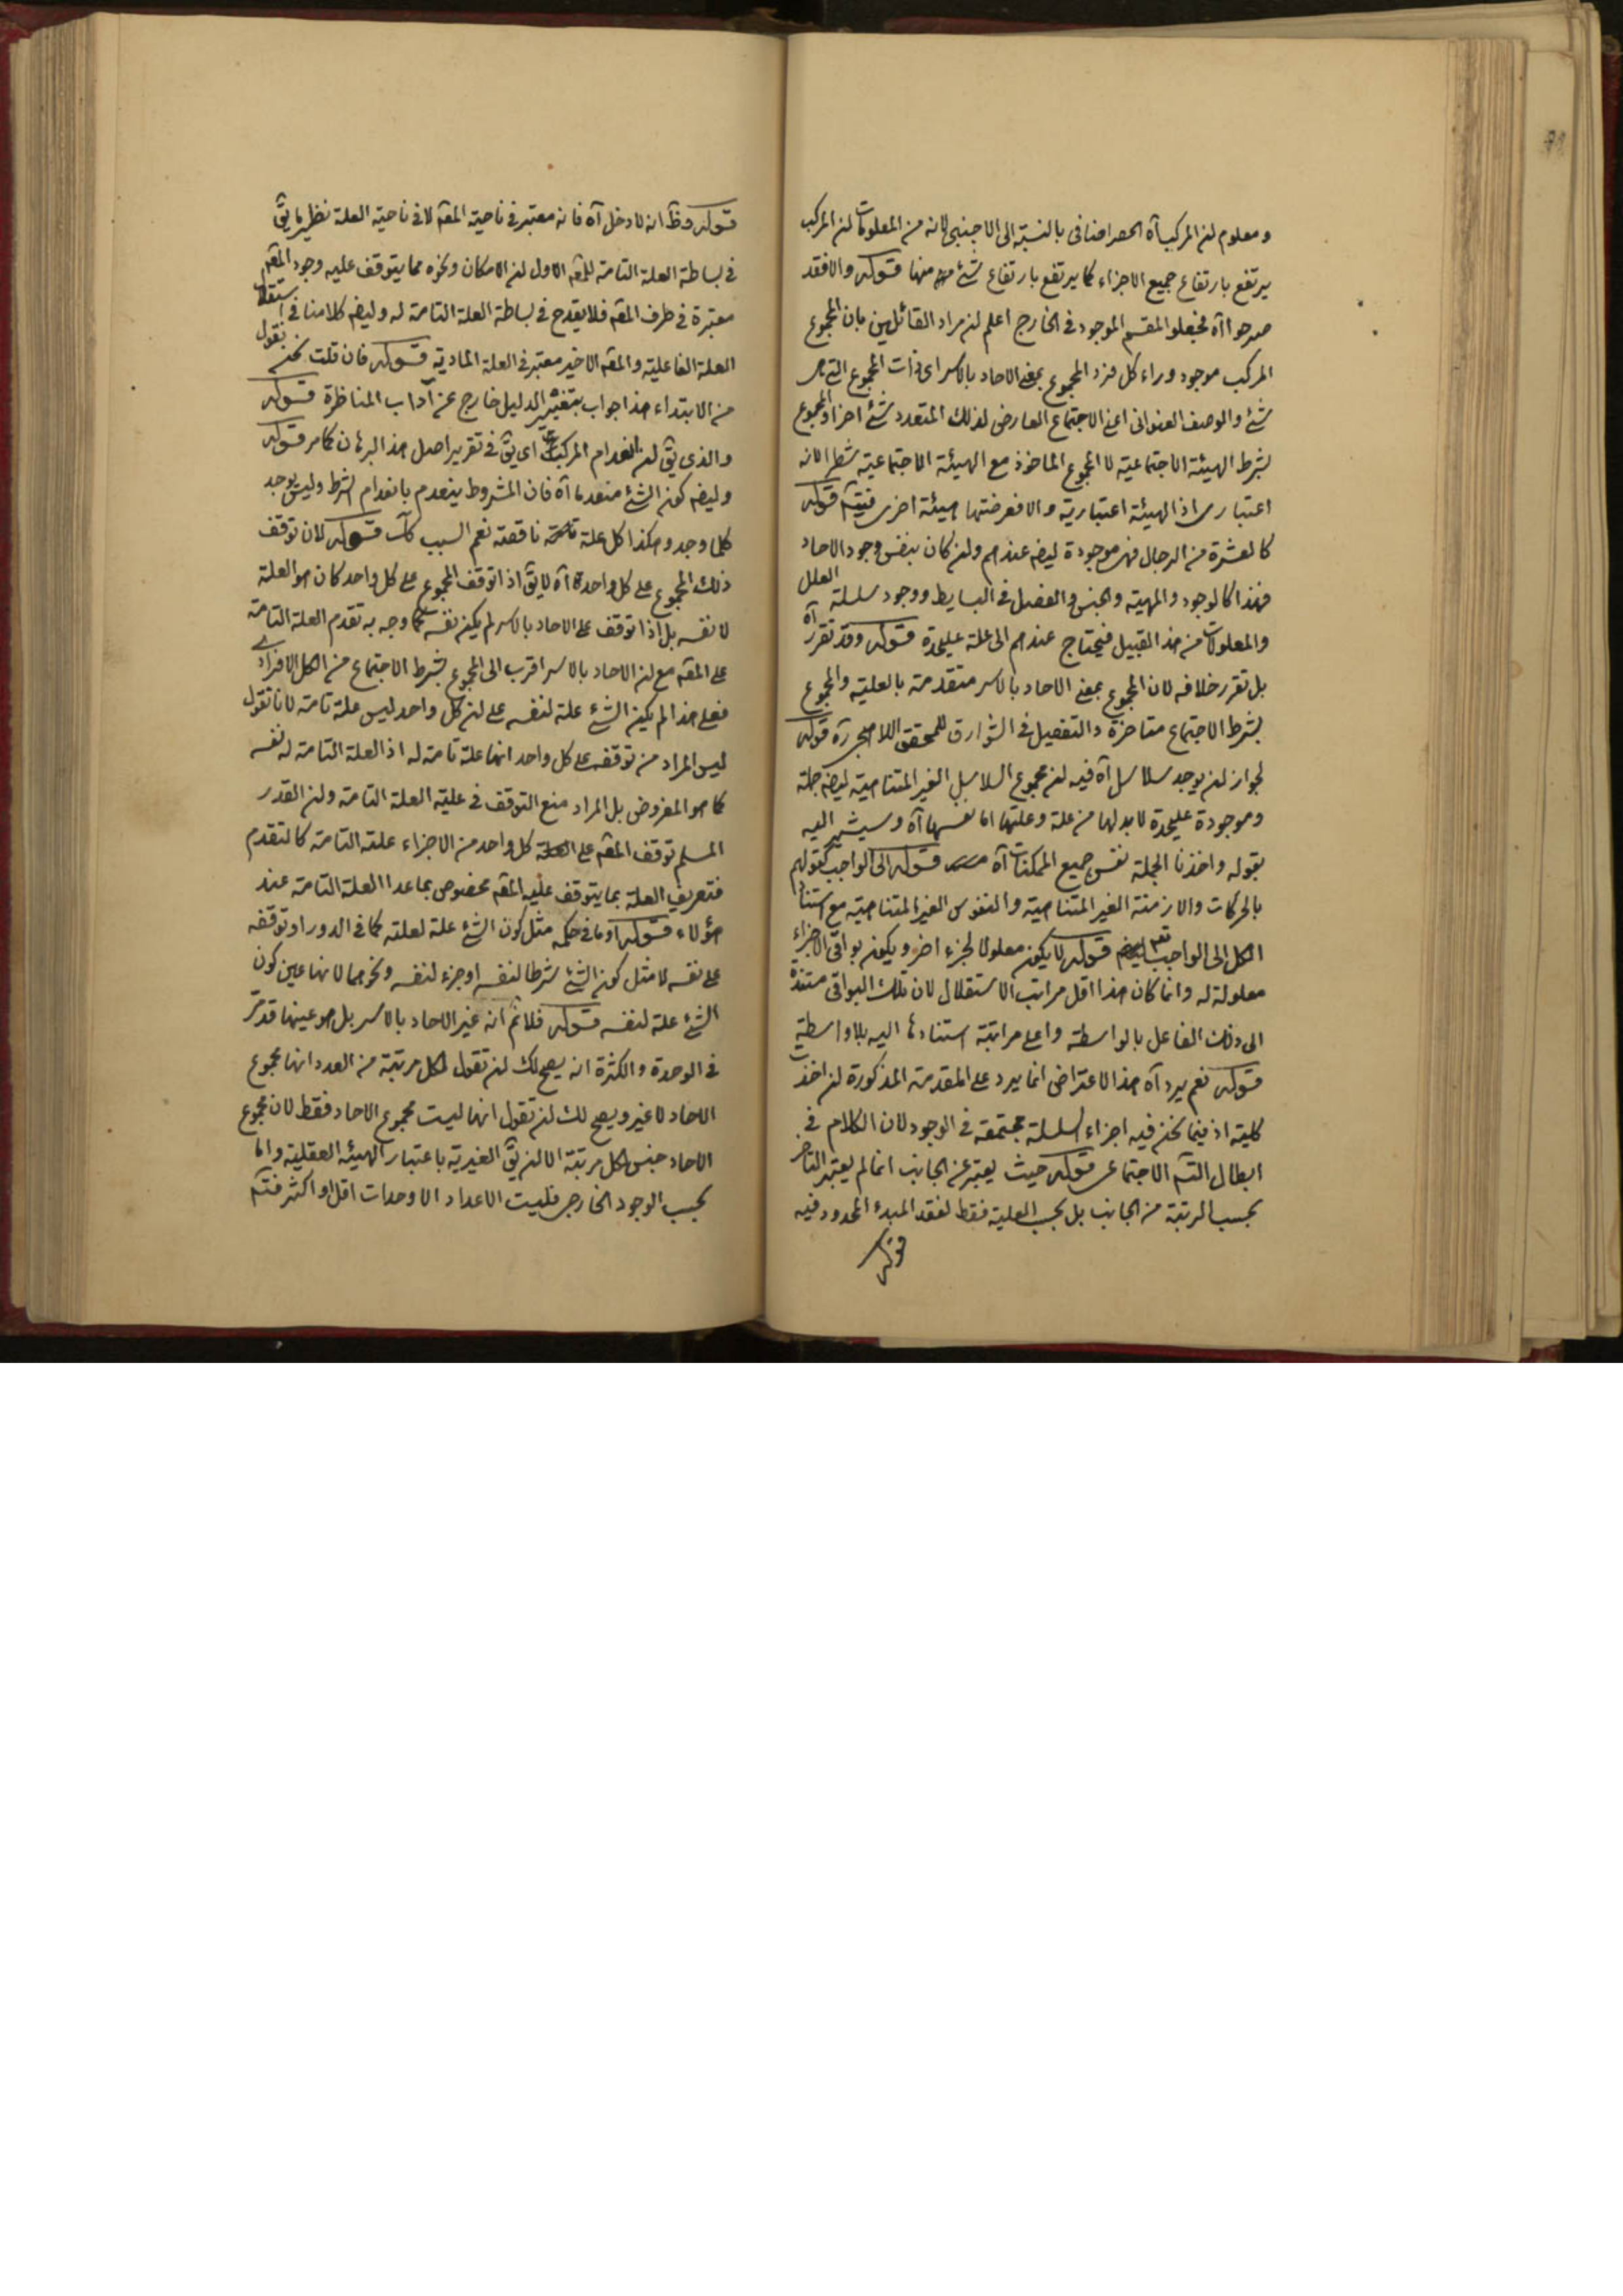 ومعلوم لن المركب آه الحصر اضافى بالنسبة الى الاجنبى لانه من المعلومات لن المركب
يرتفع بارتفاع جميع الاجزاء كما يرتفع بارتفاع شئ منها قوله والافقد
صرحوا آه فجعلوا المقسم الموجود فى الخارج اعلم لن مراد القائلين بان المجموع
المركب موجود وراء كل فرد المجموع بمعنى الاحاد بالاسر اى ذات المجموع التى هى
شئ والوصف العنوانى اعنى الاجتماع العارض لذلك المتعدد شئ اخر او المجموع
بشرط الهيئة الاجتماعية لا المجموع الماخوذ مع الهيئة الاجتماعية شطرا لانه
اعتبارى اذ الهيئة اعتبارية والا فعرضتها هيئة اخرى فيتم قوله
كالعشرة من الرجال فهى موجودة ايضا عندهم ولن كان بنفس وجود الاحاد
فهذا كالوجود والمهية والجنس والفصل فى البسايط ووجود سلسلة العلل
والمعلولات من هذا القبيل فيحتاج عندهم الى علة عليحدة قوله وقد تقرر آه
بل تقرر خلافه لان المجموع بمعنى الاحاد بالاسر متقدمة بالعلية والمجموع
بشرط الاجتماع متاخرة والتفصيل فى الشوارق للمحقق اللاهجى ره قوله
لجواز لن يوجد سلاسل آه فيه لن مجموع السلاسل الغير المتناهية ايضا جملة
وموجودة عليحدة لابد لها من علة وعلتها اما نفسها آه وسيشير اليه
بقوله واخذنا الجملة نفس جميع الممكنات آه قوله الى الواجب كقولهم
بالحركات والازمنة الغير المتناهية والنفوس الغير المتناهية مع استناد
الكل الى الواجب تعم قوله لا يكون معلولا لجزء اخر ويكون بواقى الاجزاء
معلولة له وانما كان هذا اقل مراتب الاستقلال لان تلك البواقى مستندة
الى ذلك الفاعل بالواسطة واعلى مراتبة استنادها اليه بلا واسطة
قوله نعم يرد آه هذا الاعتراض انما يرد على المقدمة المذكورة لن اخذت
كلية اذ فيما نحن فيه اجزاء السلسلة مجتمعة فى الوجود لان الكلام فى
ابطال التسم الاجتماعى قوله حيث يعتبر عن الجانب انما لم يعتبر التاخر
بحسب الرتبة من الجانب بل بحسب العلية فقط لفقد المبدء المحدود فيه
قوله
قوله وظ انه لا دخل آه فانه معتبر فى ناحية المعم لا فى ناحية العلة نظير ما يق
فى بساطة العلة التامة للمعم الاول لن الامكان ونحوه مما يتوقف عليه وجود المعم
معتبرة فى طرف المعم فلا يقدح فى بساطة العلة التامة له وايضا كلامنا فى استقلال
العلة الفاعلية والمعم الاخير معتبر فى العلة المادية قوله فان قلت نحن نقول
من الابتداء هذا جواب بتغيير الدليل خارج عن آداب المناظرة قوله
والذى يق لن انعدام المركب اى يق فى تقرير اصل هذا البرهان كما مر قوله
وايضا كون الشئ منعدما آه فان المشروط ينعدم بانعدام الشرط وليس يوجد
كلما وجد وهكذا كل علة ناقصة نعم السبب كك قوله لان توقف
ذلك المجموع على كل واحدة آه لا يق اذا توقف المجموع على كل واحد كان هو العلة
لا نفسه بل اذا توقف على الاحاد بالاسر لم يكن نفسه كما وجه به تقدم العلة التامة
على المعم مع لن الاحاد بالاسر اقرب الى المجموع بشرط الاجتماع من الكل الافرادى
فعلى هذا لم يكن الشئ علة لنفسه على لن كل واحد ليس علة تامة لانا نقول
ليس المراد من توقفه على كل واحد انها علة تامة له اذ العلة التامة له نفسه
كما هو المفروض بل المراد منع التوقف فى علية العلة التامة ولن القدر
المسلم توقف المعم على كل واحد من الاجزاء علته التامة كالتقدم
فتعريف العلة بما يتوقف عليه المعم مخصوص بما عدا العلة التامة عند
هؤلاء قوله او ما فى حكمه مثل كون الشئ علة لعلته كما فى الدور او توقفه
على نفسه لا مثل كون الشئ شرطا لنفسه او جزء لنفسه ونحوهما لانها عين كون
الشئ علة لنفسه قوله فلانم انه غير الاحاد بالاسر بل هو عينها قد مر
فى الوحدة والكثرة انه يصح لك لن تقول لكل مرتبة من العدد انها مجموع
الاحاد لا غير ويصح لك لن تقول انها ليست مجموع الاحاد فقط لان مجموع
الاحاد جنس لكل مرتبة الا لن يق الغيرية باعتبار الهيئة العقلية واما
بحسب الوجود الخارجى فليست الاعداد الا وحدات اقل او اكثر فتم